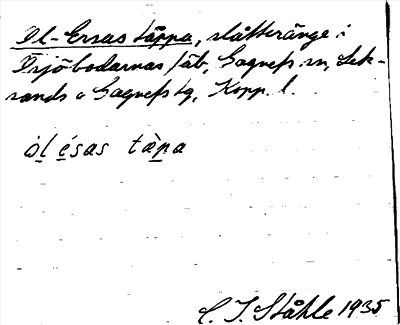 Ol-Ersas täppa, slåtteränge i
Osjöbodarnas fäb, Gagnefs sn, Lek-
sands o Gagnefs tg, Kopp. l.
ol ésas tàpa
C. I. Ståhle 1935